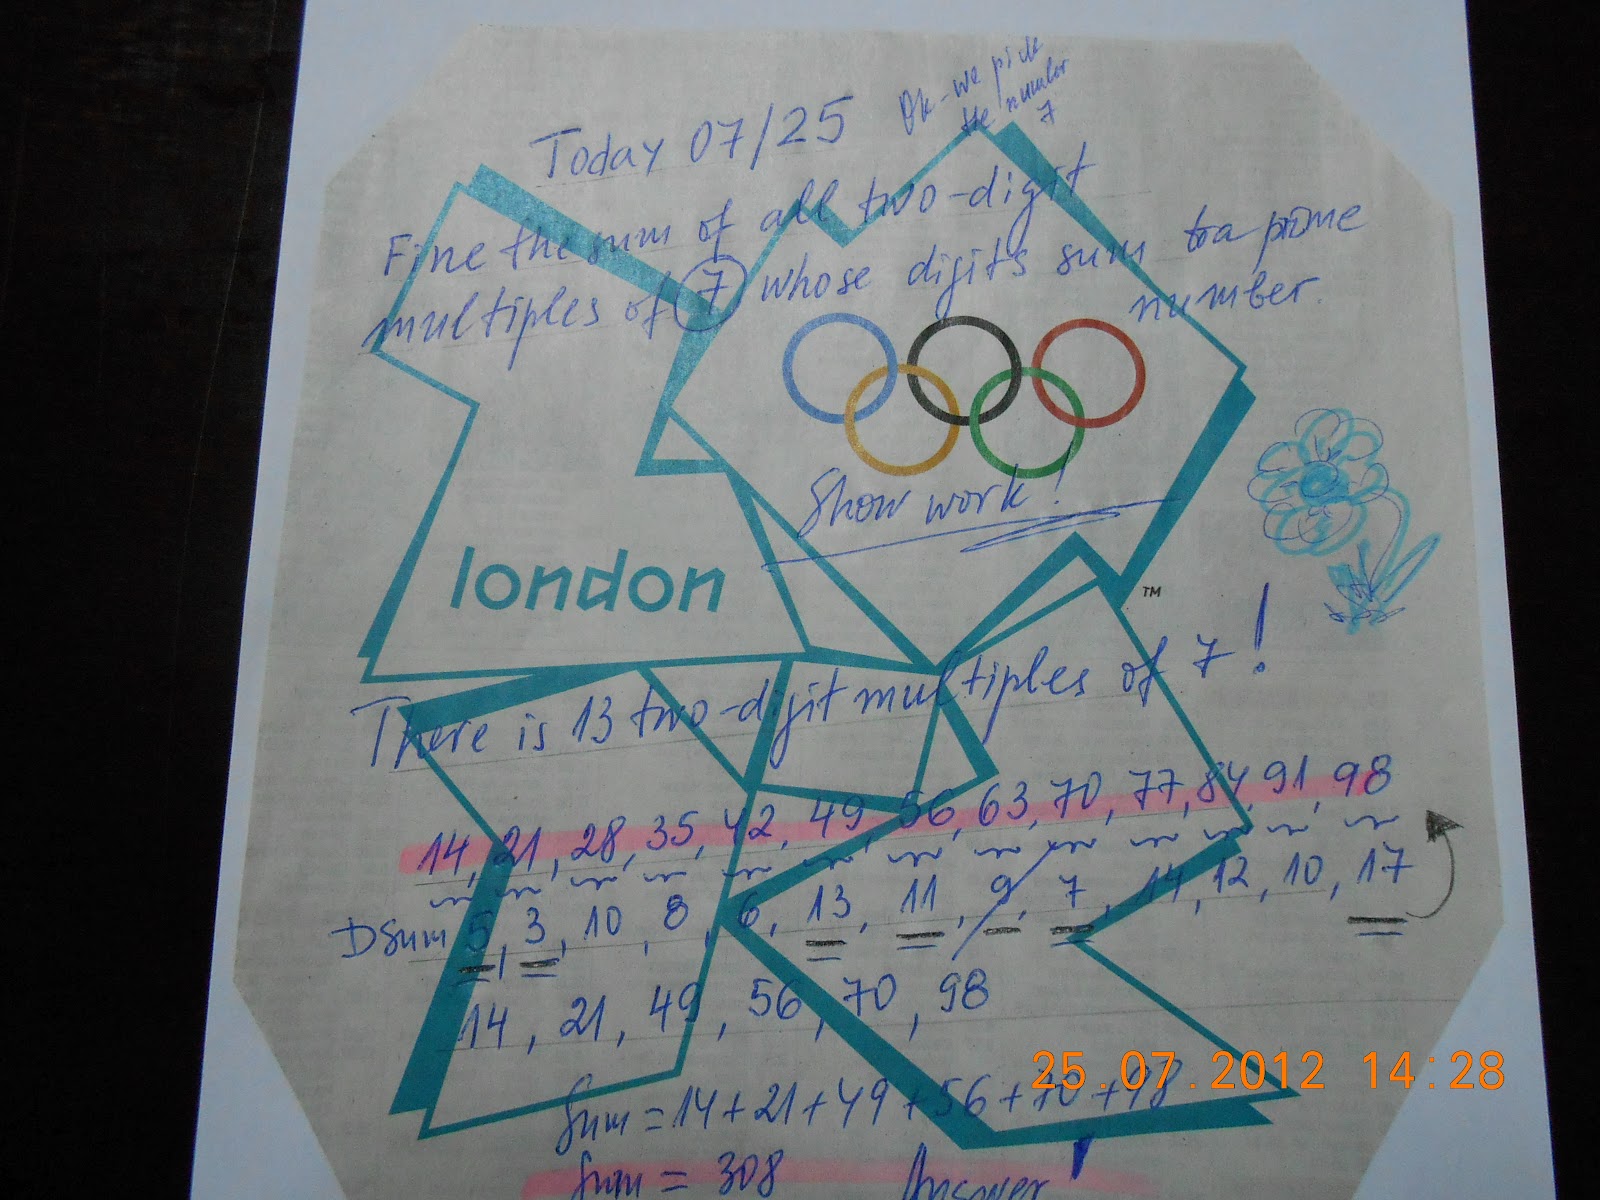 Ok - we pick
the number
7
Today 07/25
Fine the sum of all two-digit
multiples of 7 whose digits sum to a prime
number.
Show work!
london
TM
There is 13 two-digit multiples of 7!
14, 21, 28, 35, 42, 49, 56, 63, 70, 77, 84, 91, 98
DSum 5, 3, 10, 8, 6, 13, 11, 9, 7, 14, 12, 10, 17
14, 21, 49, 56, 70, 98
25.07.2012 14:28
Sum = 14+21+49+56+70+98
Sum = 308 Answer!